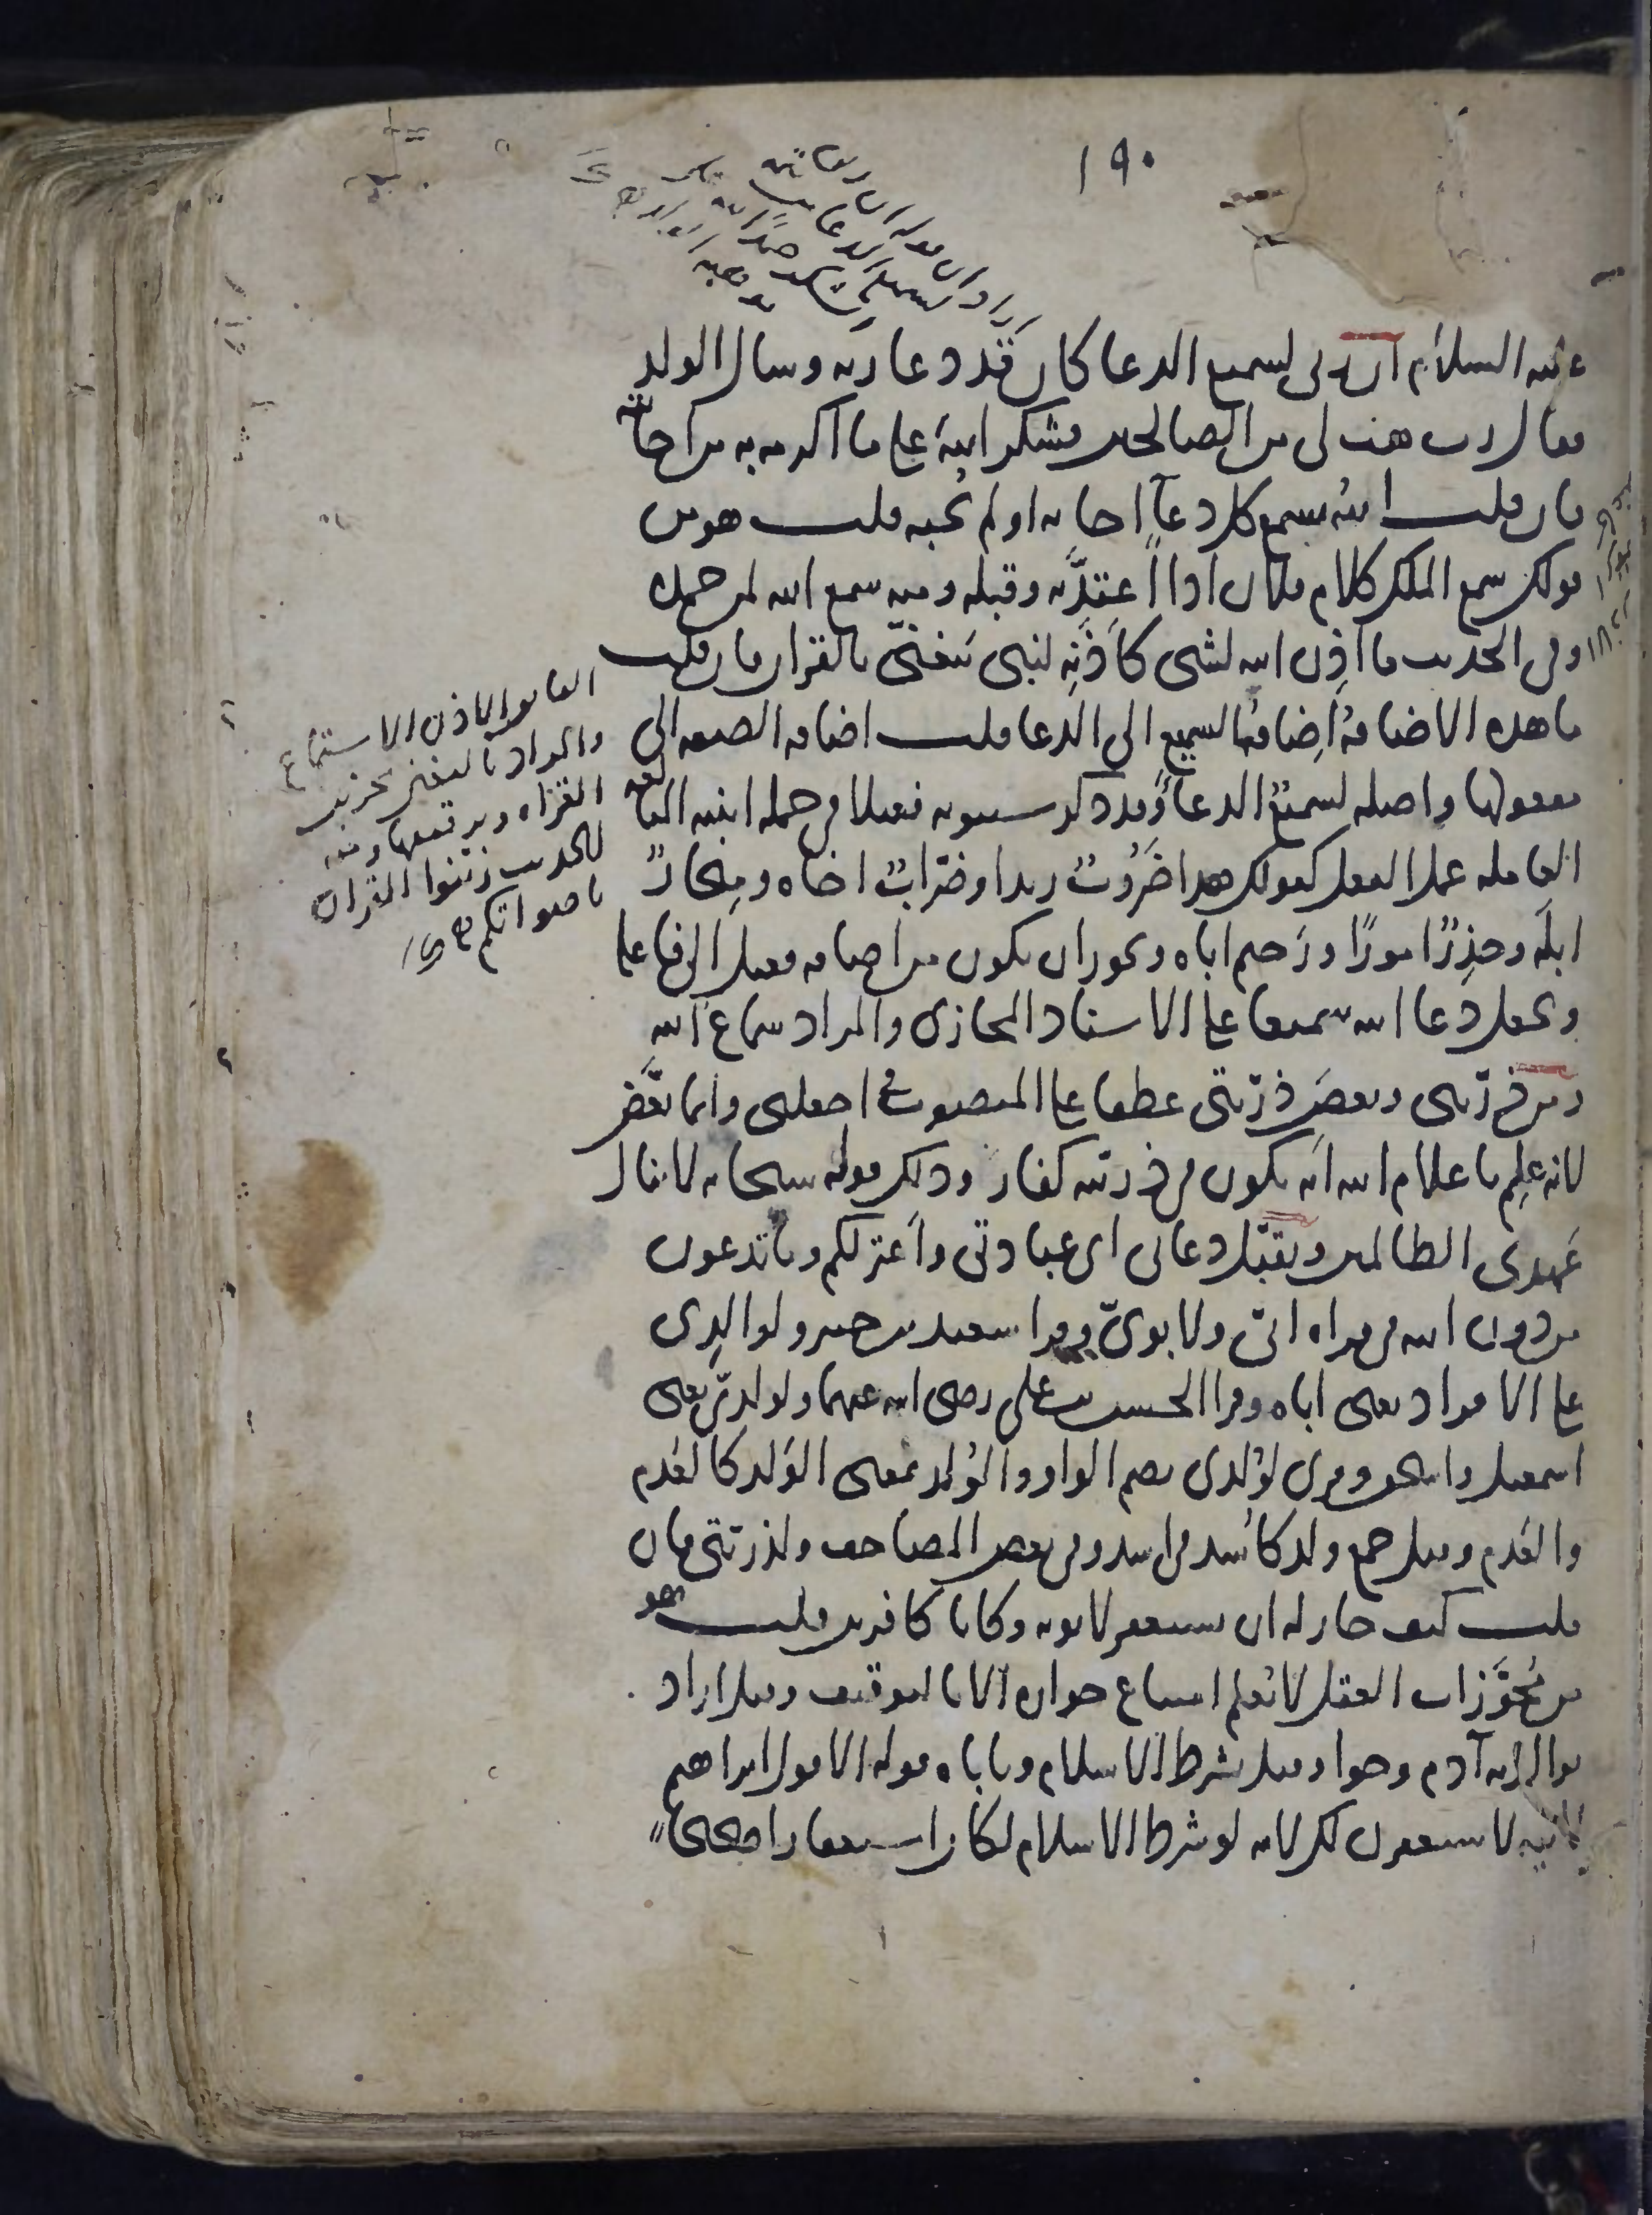 ١٩٠
عليه السلام ان ربى لسميع الدعا كان قد دعا ربه وسال الولد
فقال رب هب لى من الصالحين فشكر لله على ما اكرمه به من اجابته
فان قلت الله يسمع كل دعآ اجابه او لم يجبه قلت هو من
قولك سمع الملك كلام فلان اذا اعتدّ به وقبله ومنه سمع الله لمن حمده
وفى الحديث ما اَذِن الله لشى كاَذَنِه لنبى يتغنّى بالقران فان قلت
ما هذه الاضافة اضافة السميع الى الدعا قلت اضافة الصفه الى
مفعولها واصله لسميعٌ الدعاَ وقد ذكر سيبويه فعيلا فى جمله ابنيه المبالغه
العامله عمل الفعل كقولك هذا ضَرُوبٌ زيدا وضرّابٌ اخاه ومِنحارٌ
ابلَه وحذِرٌ امورًا ورَحيم اباه ويجوز ان يكون من اضافه فعيل الى فاعله
ويجعل دعا الله سميعا على الاسناد المجازى والمراد سماع الله
ومن ذرّيتى وبعضَ ذرّيتى عطفا على المنصوب فى اجعلنى وانما بَعّض
لانه علِم باعلام الله انه يكون فى ذريته كفار وذلك قوله سبحانه لا ينال
عَهدى الظالمين وتقبّل دعائى اى عبادتى واَعتزلكم وما تدعون
من دون الله فى قراه ابىّ ولابوىّ وقرا سعيد بن جبير ولوالِدِى
على الافراد يعنى اباه وقرا الحسن بن على رضى الله عنهما ولولدىّ يعنى
اسمعيل واسحق وقرى لوُلدى بضم الواو والوُلد بمعنى الوَلد كالعُدم
والعَدم وقيل جمع ولد كاُسد فى اسد وفى بعض المصاحف ولذريتى فان
قلت كيف جاز له ان يستغفر لابويه وكانا كافرين قلت هو
من مُجَوَّزات العقل لا يُعلم امتناع جوازه الا بالتوقيف وقيل اراد
بوالديه آدم وحوا وقيل بشرط الاسلام ويأباه قوله الا قول ابراهيم
لابيه لاستغفرن لك لانه لو شرط الاسلام لكان استغفارا صحيحا
القانو الاذن الاستماع
والمراد بالتغنى تحزين
القراه وترقيقها ومنه
الحديث زينوا القران
باصواتكم